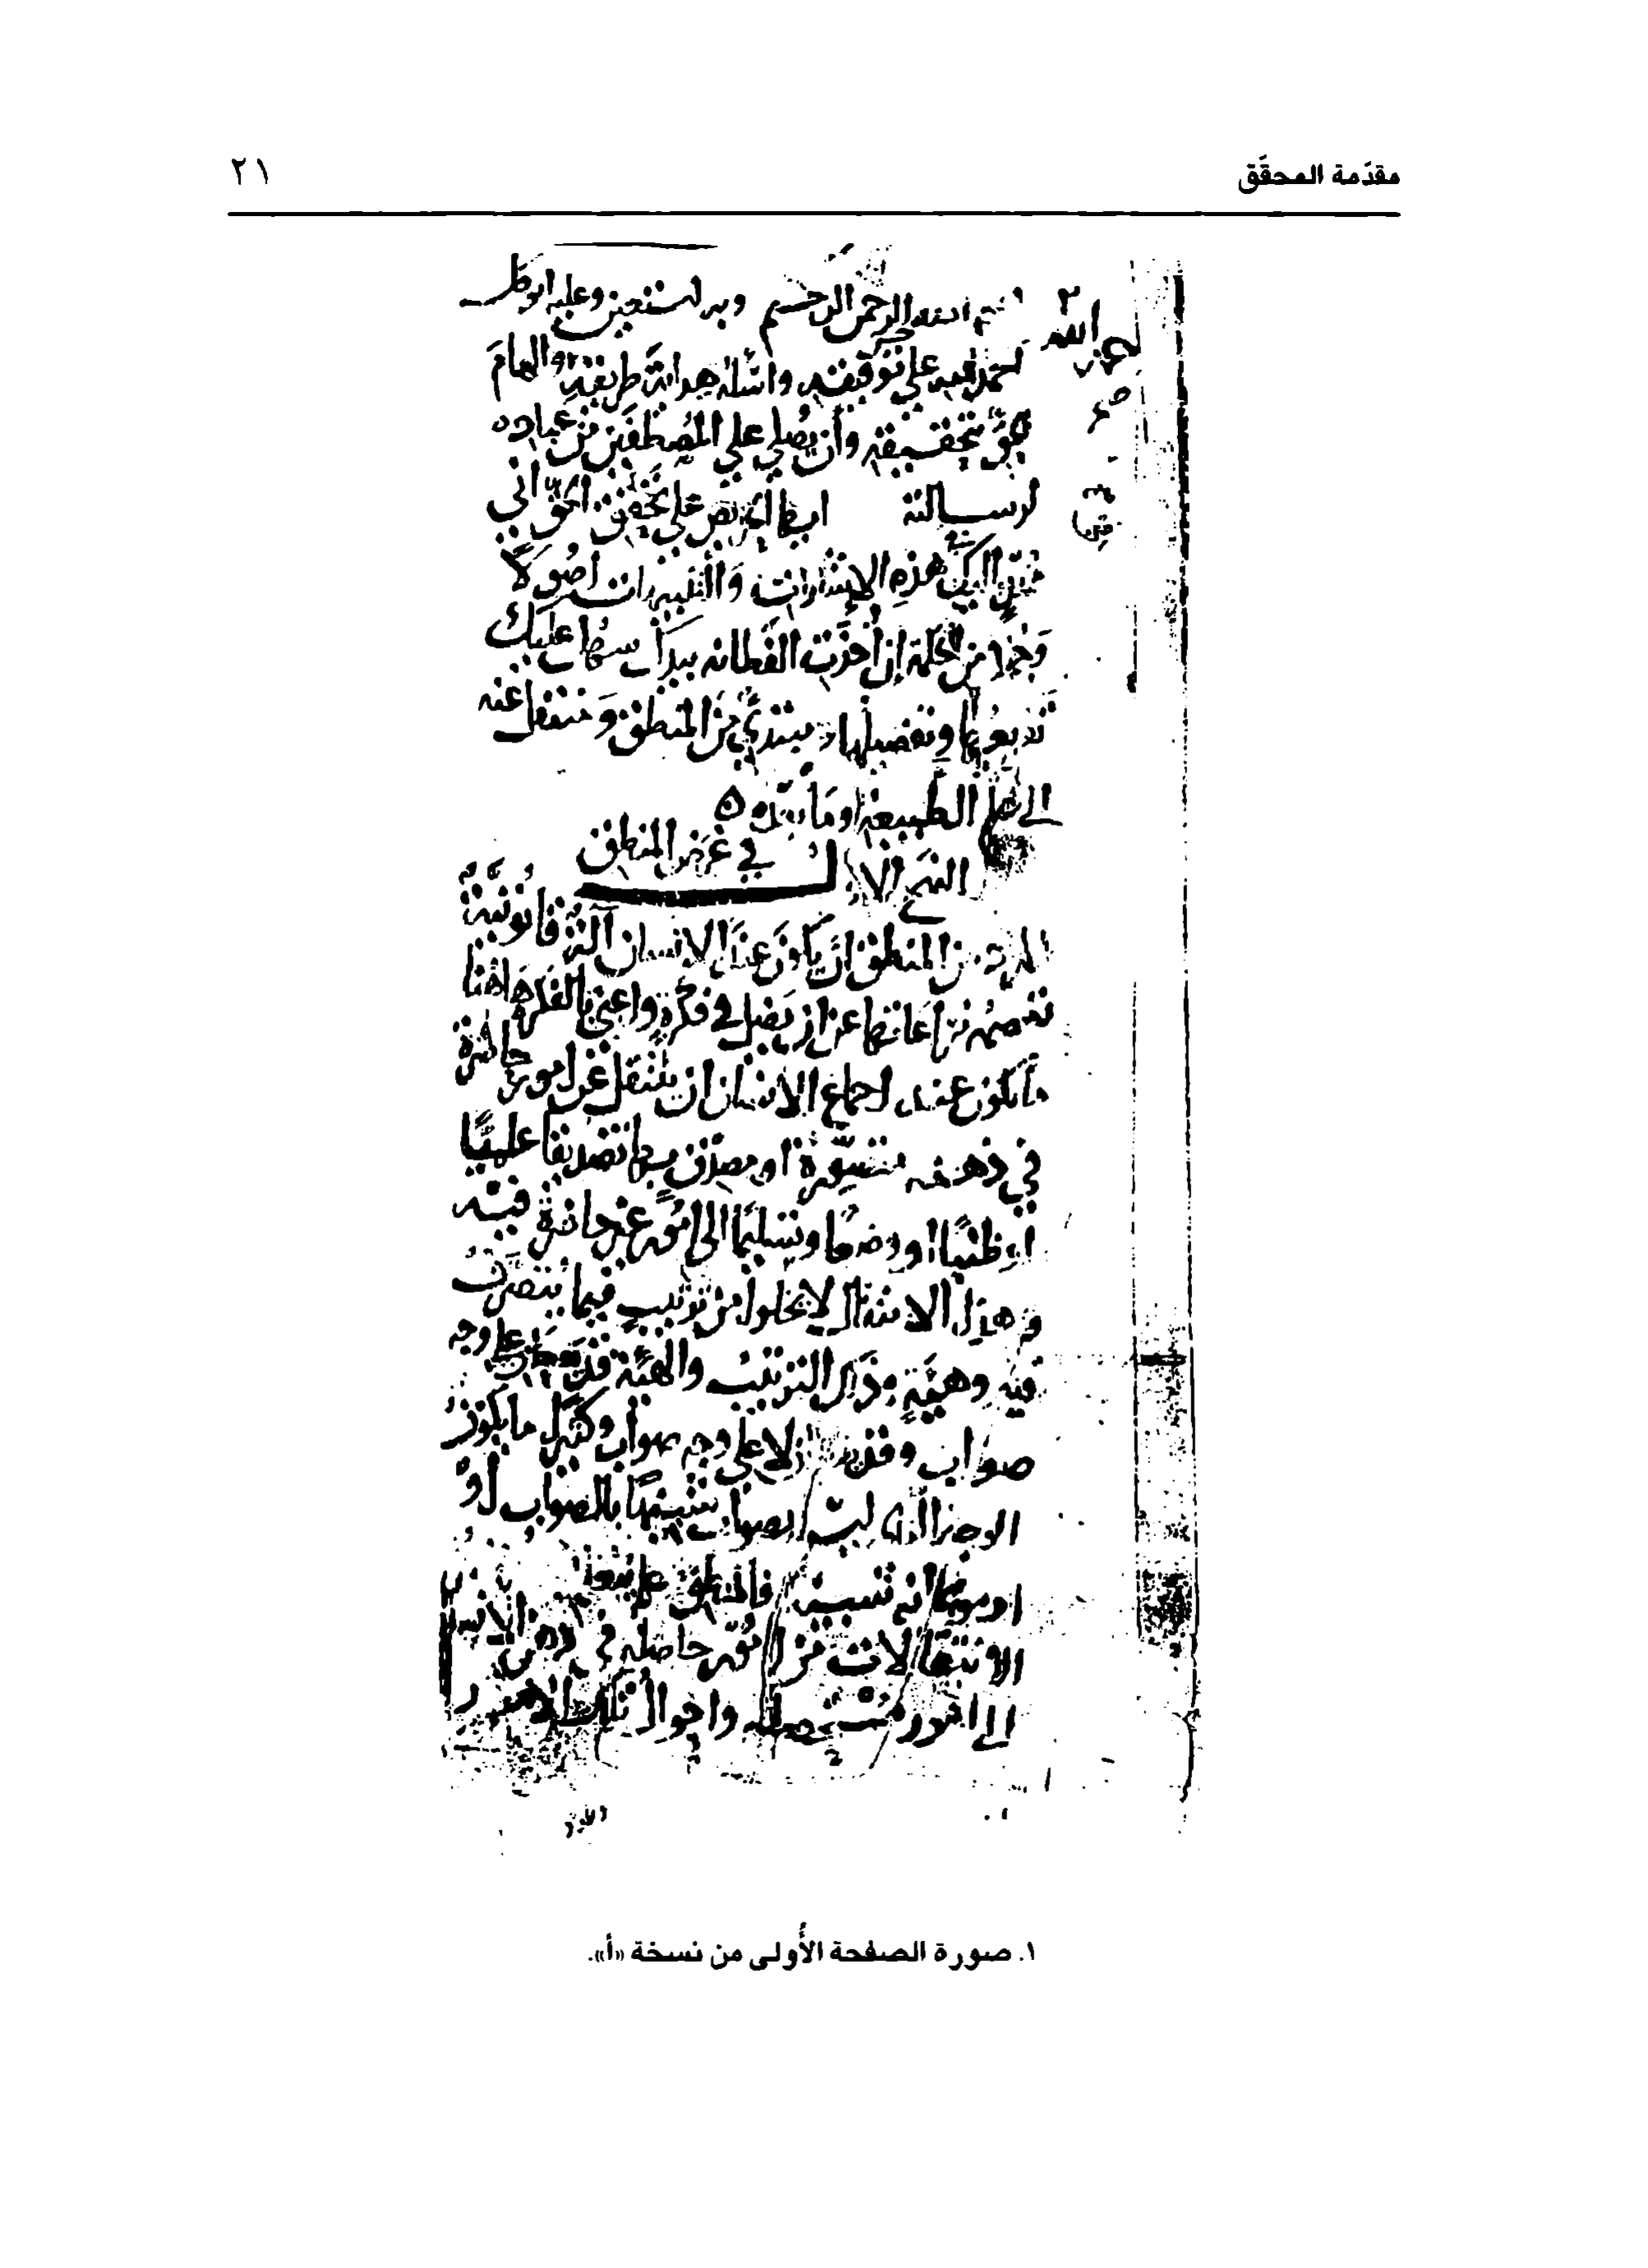 مقدّمة المحقّق
٢١
بسم الله الرحمن الرحيم وبه نستعين وعليه اتوكل
احمد الله على توفيقه واسأله هداية طريقه والهام
الحق بتحقيقه وأن يصلي على المصطفين من عباده
لرسالته ايها الحريص على تحقق الحق اني
اليك هذه الإشارات والتنبيهات اصولا
وجملا من الحكمة إن أخذت الفطانة بيدك سهل عليك
تفريعها وتفصيلها ومبتدئ من المنطق ومنتقل عنه
الى علم الطبيعة وما بعده
النهج الاول في غرض المنطق
المراد من المنطق ان يكون عند الانسان آلة قانونية
تعصمه مراعاتها عن ان يضل في فكره واعني بالفكر هاهنا
ما يكون عند اجماع الانسان ان ينتقل عن امور حاضرة
في ذهنه متصورة او مصدق بها تصديقا علميا
او ظنيا او وضعا وتسليما الى امور غير حاضرة فيه
وهذا الانتقال لا يخلوا من ترتيب فيما يتصرف
فيه وهيئة وذلك الترتيب والهيئة قد على وجه
صواب وقد لا على وجه صواب وكثيرا ما يكون
الوجه الذي ليس بصواب شبيها بالصواب أو
او موهما انه شبيه فالمنطق علم يتعلم
الانتقالات من امور حاصلة في ذهن الانسان
الى امور مستحصلة واحوال تلك الامور
١. صورة الصفحة الأُولى من نسخة «أ».